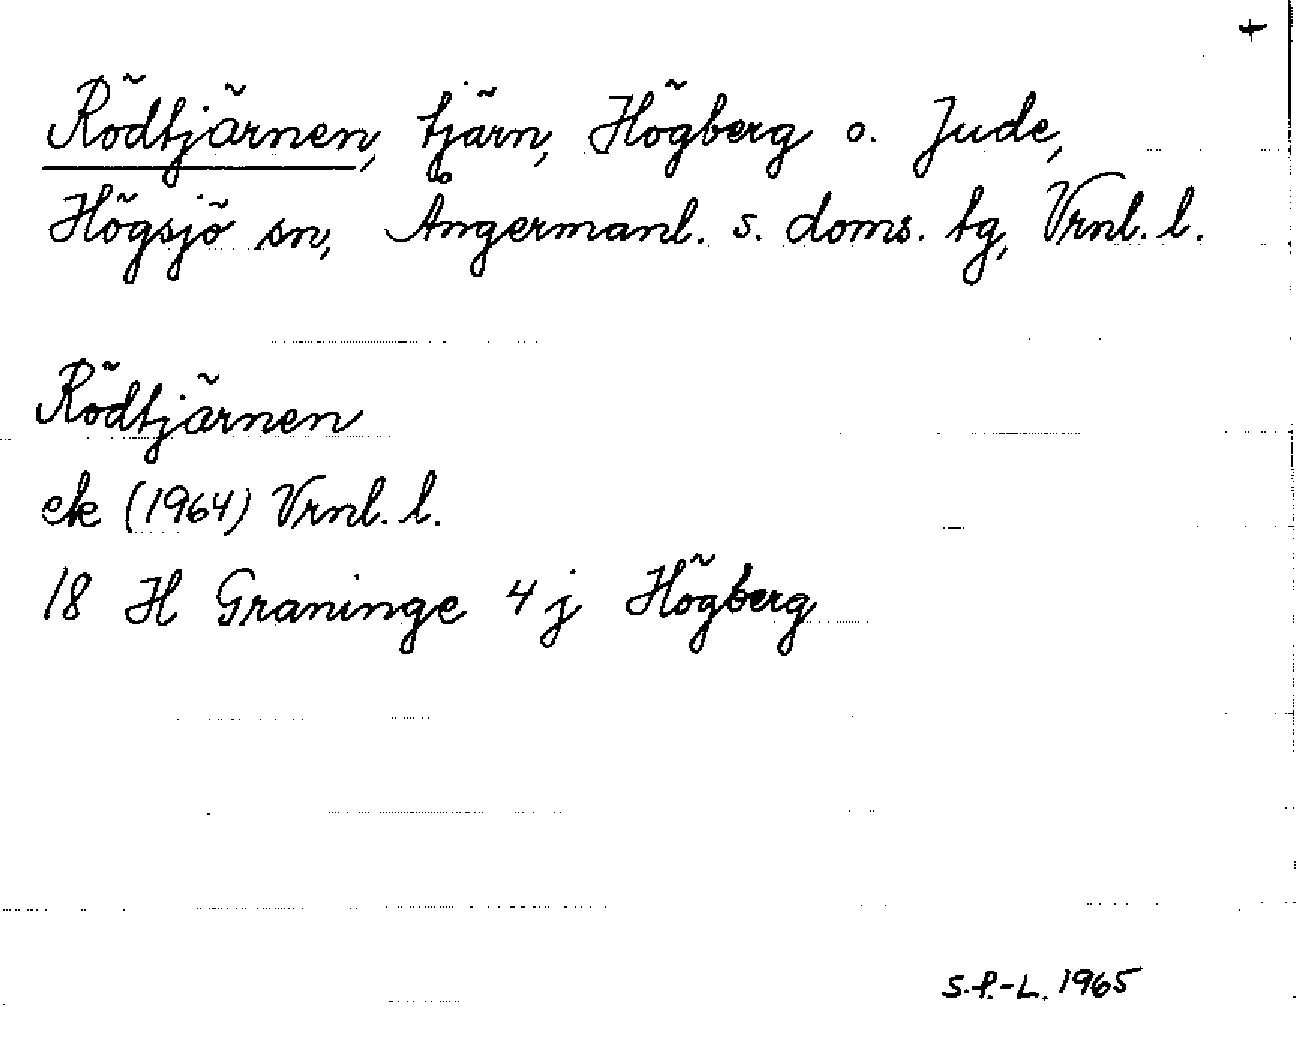 +
Rödtjärnen, tjärn, Högberg o. Jude,
Högsjö sn, Ångermanl. s. doms. tg, Vrnl. l.
Rödtjärnen
ek (1964) Vrnl. l.
18 H Graninge 4 j Högberg
S.P.-L. 1965